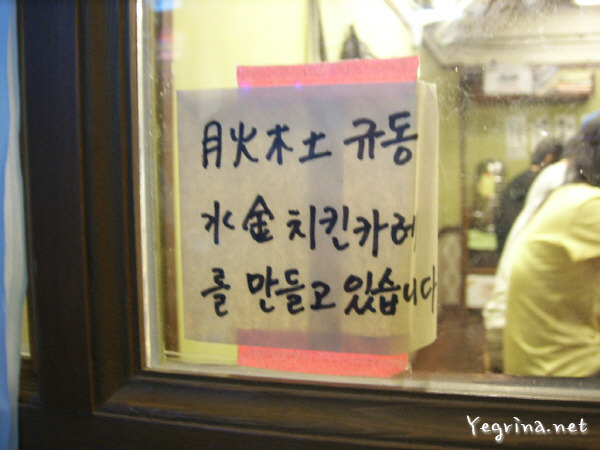 月火木土 규동
水金 치킨카레
를 만들고 있습니다
Yegrina.net